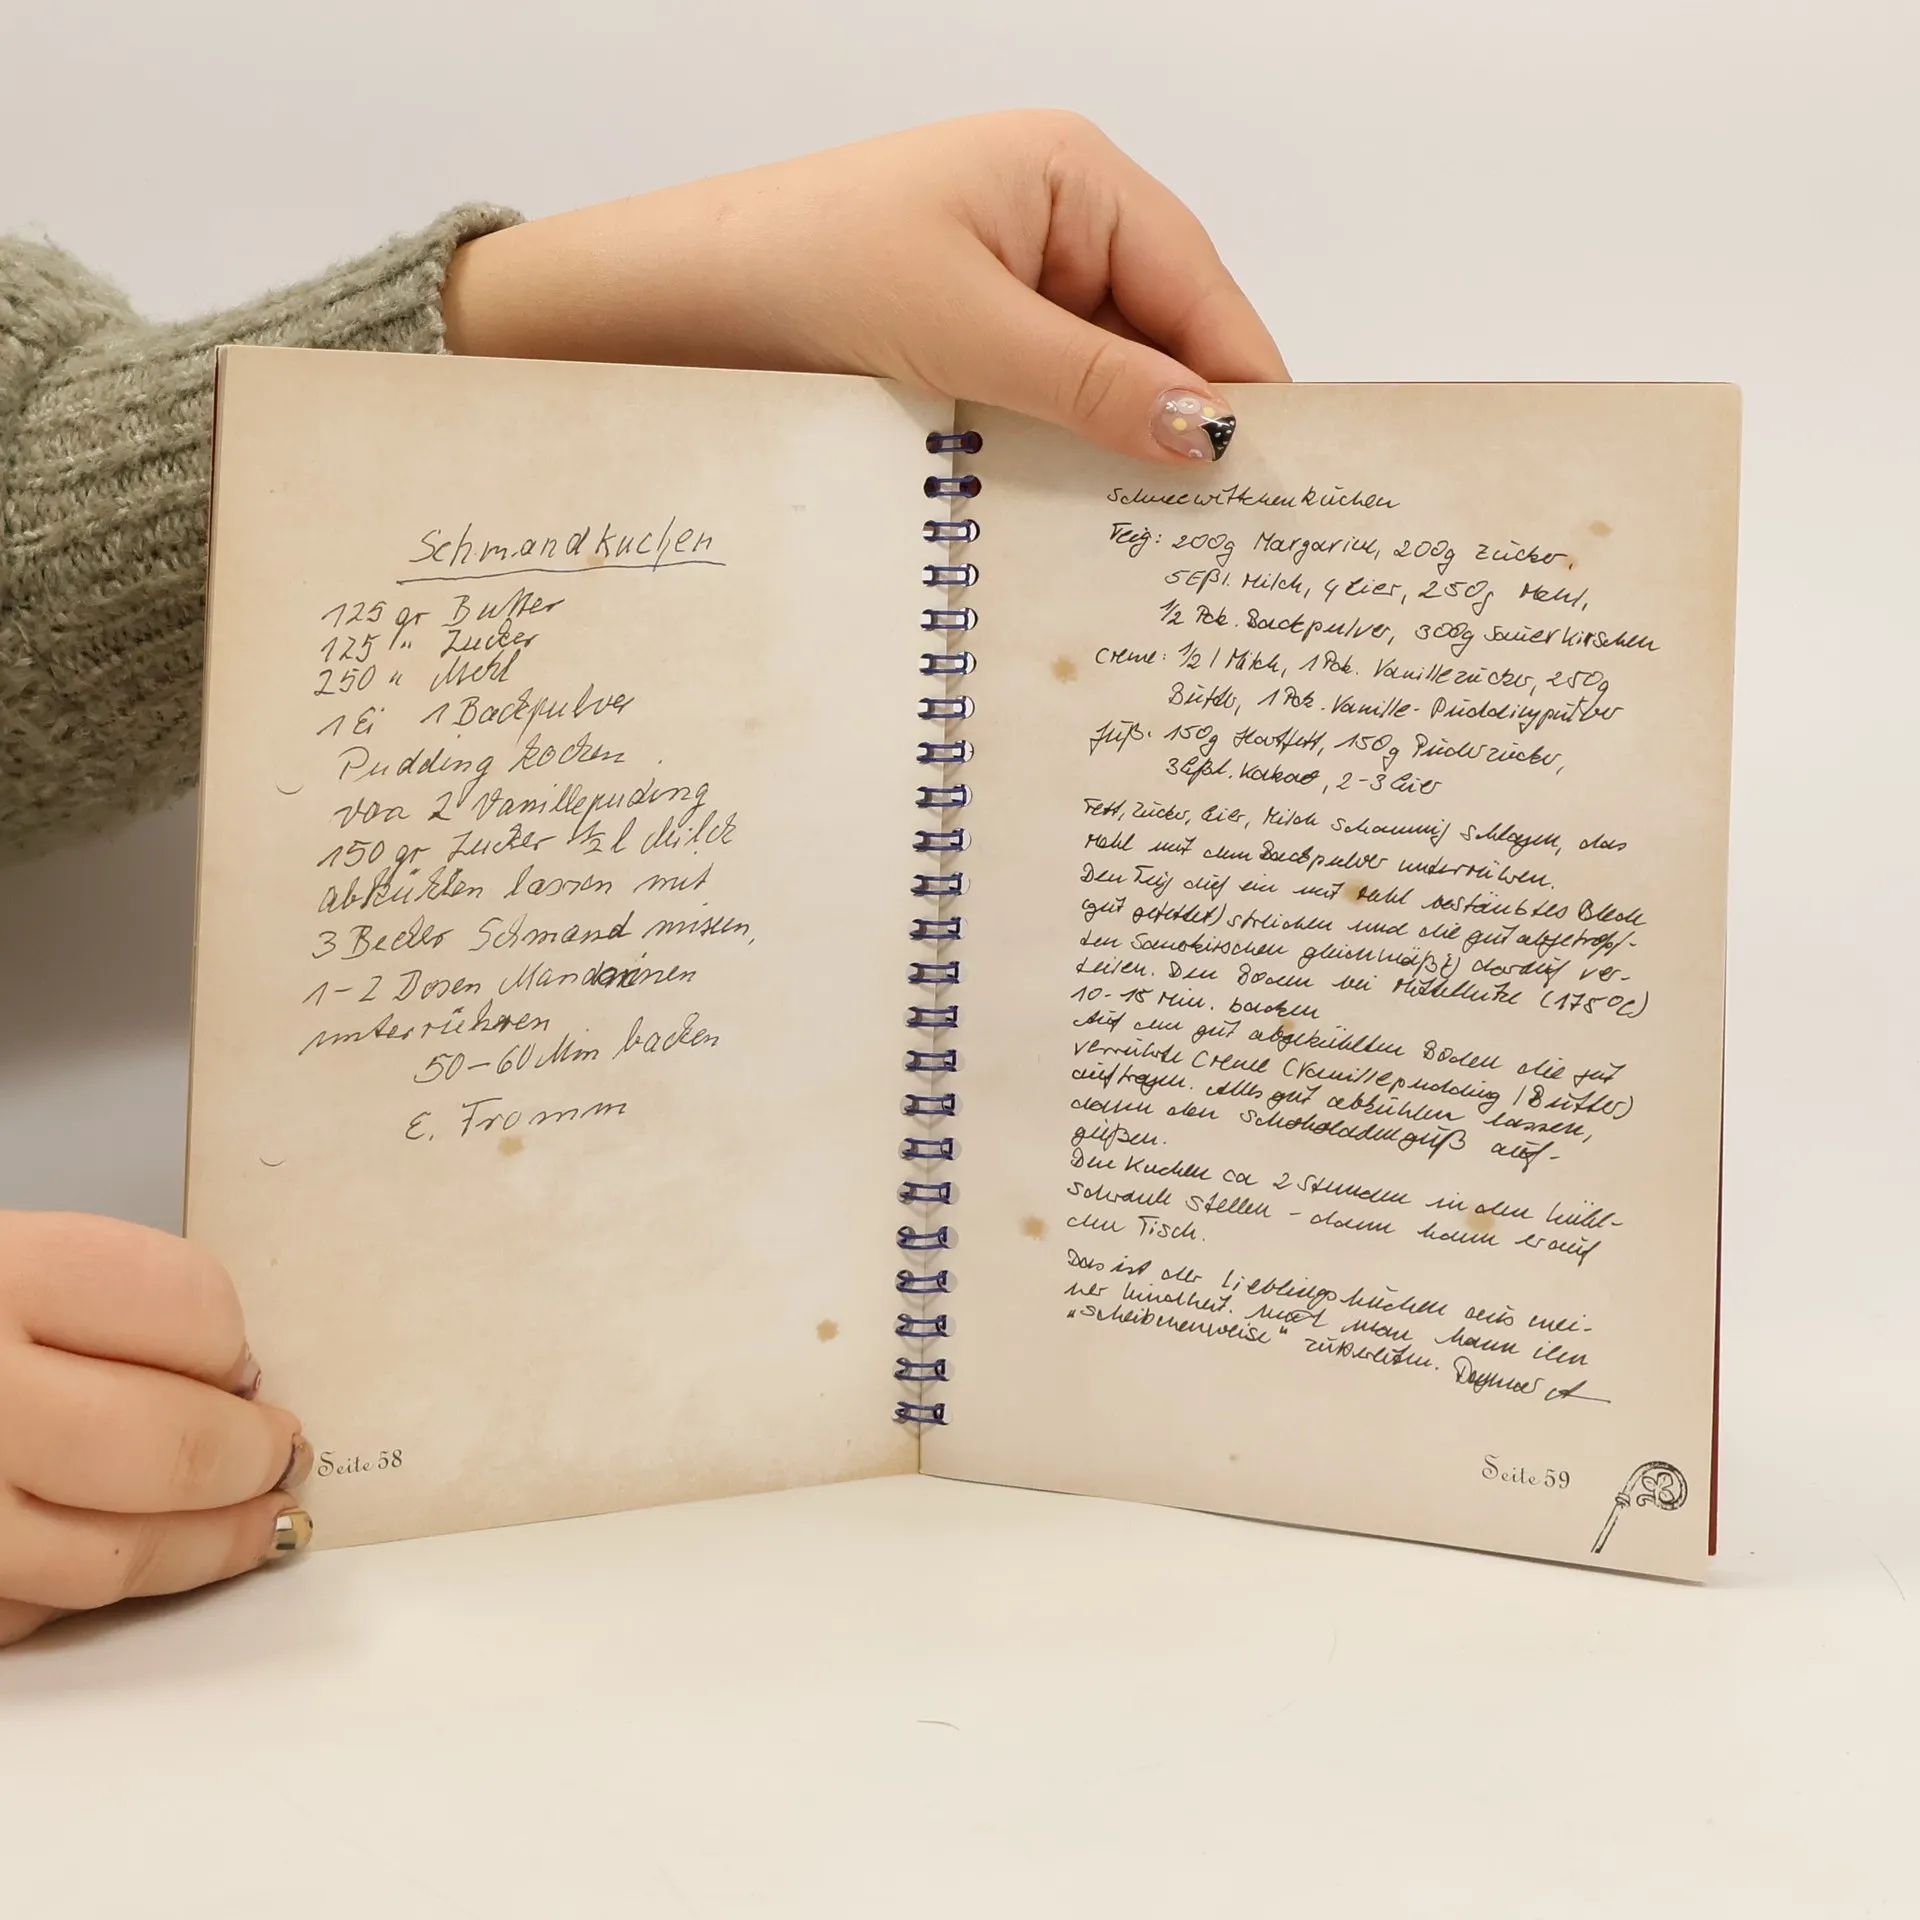 Schmandkuchen
125 gr Butter
125 " Zucker
250 " Mehl
1 Ei 1 Backpulver
Pudding kochen
von 2 Vanillepuding
150 gr Zucker 1/2 l Milch
abkühlen lassen mit
3 Becher Schmand mixen,
1-2 Dosen Mandarinen
unterrühren
50-60 Min backen
E. Fromm
Seite 58
Schneewittchenkuchen
Teig: 200g Margarine, 200g Zucker,
5 Eßl. Milch, 4 Eier, 250g Mehl,
1/2 Pck. Backpulver, 300g Sauerkirschen
Creme: 1/2 l Milch, 1 Pck. Vanillezucker, 250g
Butter, 1 Pck. Vanille-Puddingpulver
Guß: 150g Hartfett, 150g Puderzucker,
3 Eßl. Kakao, 2-3 Eier
Fett, Zucker, Eier, Milch schaumig schlagen, das
Mehl mit dem Backpulver unterrühren.
Den Teig auf ein mit Mehl bestäubtes Blech
(gut gefettet) streichen und die gut abgetropf-
ten Sauerkirschen gleichmäßig darauf ver-
teilen. Den Boden bei Mittelhitze (175°C)
10-15 Min. backen
Auf den gut abgekühlten Boden die gut
verrührte Creme (Vanillepudding / Butter)
auftragen. Alles gut abkühlen lassen,
dann den Schokoladenguß auf-
gießen.
Den Kuchen ca 2 Stunden in den Kühl-
schrank stellen - dann kann er auf
den Tisch.
Das ist der Lieblingskuchen aus mei-
ner Kindheit. Und man kann ihn
"scheibchenweise" zubereiten. Dagmar A
Seite 59